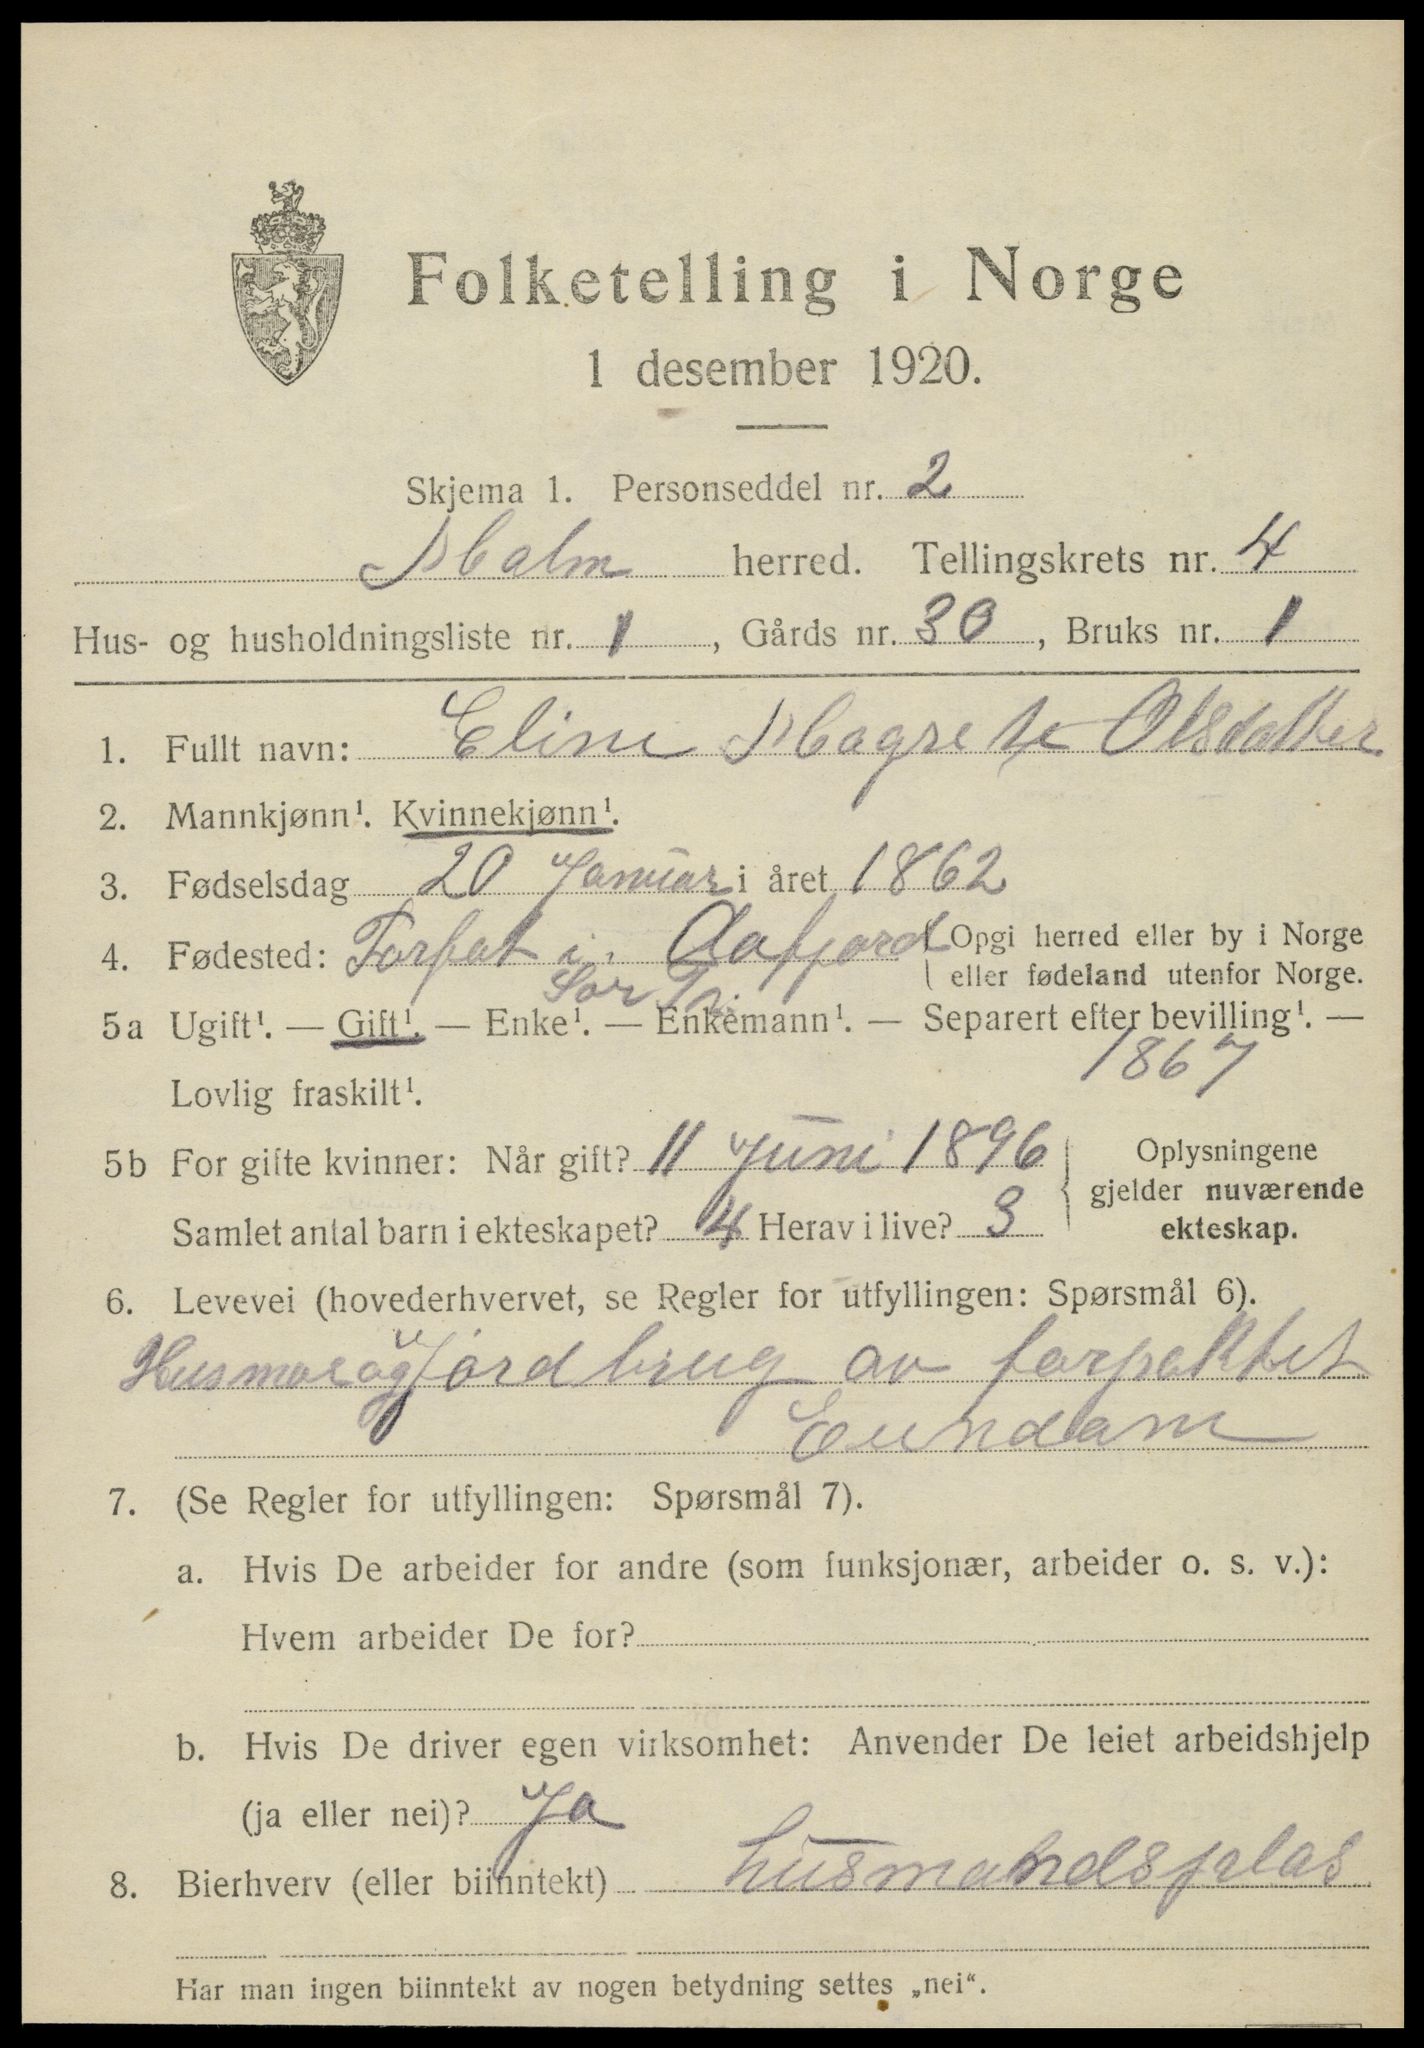 Folketelling i Norge
1 desember 1920.
Skjema 1. Personseddel nr. 2
Malm herred. Tellingskrets nr. 4
Hus- og husholdningsliste nr. 1, Gårds nr. 30, Bruks nr. 1
1. Fullt navn: Eline Magrete Olsdatter
2. Mannkjønn¹. Kvinnekjønn¹.
3. Fødselsdag 20 Januar i året 1862
4. Fødested: i Aafjord { Opgi herred eller by i Norge
eller fødeland utenfor Norge.
Sør Tr.
5a Ugift¹. — Gift¹. — Enke¹. — Enkemann¹. — Separert efter bevilling¹. —
1867
Lovlig fraskilt¹.
5b For gifte kvinner: Når gift? 11 Juni 1896
Samlet antal barn i ekteskapet? 4 Herav i live? 3
Oplysningene
gjelder nuværende
ekteskap.
6. Levevei (hovederhvervet, se Regler for utfyllingen: Spørsmål 6).
Husmor og Jordbrug av forpaktet
7. (Se Regler for utfyllingen: Spørsmål 7).
a. Hvis De arbeider for andre (som funksjonær, arbeider o. s. v.):
Hvem arbeider De for?
b. Hvis De driver egen virksomhet: Anvender De leiet arbeidshjelp
(ja eller nei)? Ja
8. Bierhverv (eller biinntekt) husmandsplas
Har man ingen biinntekt av nogen betydning settes „nei“.